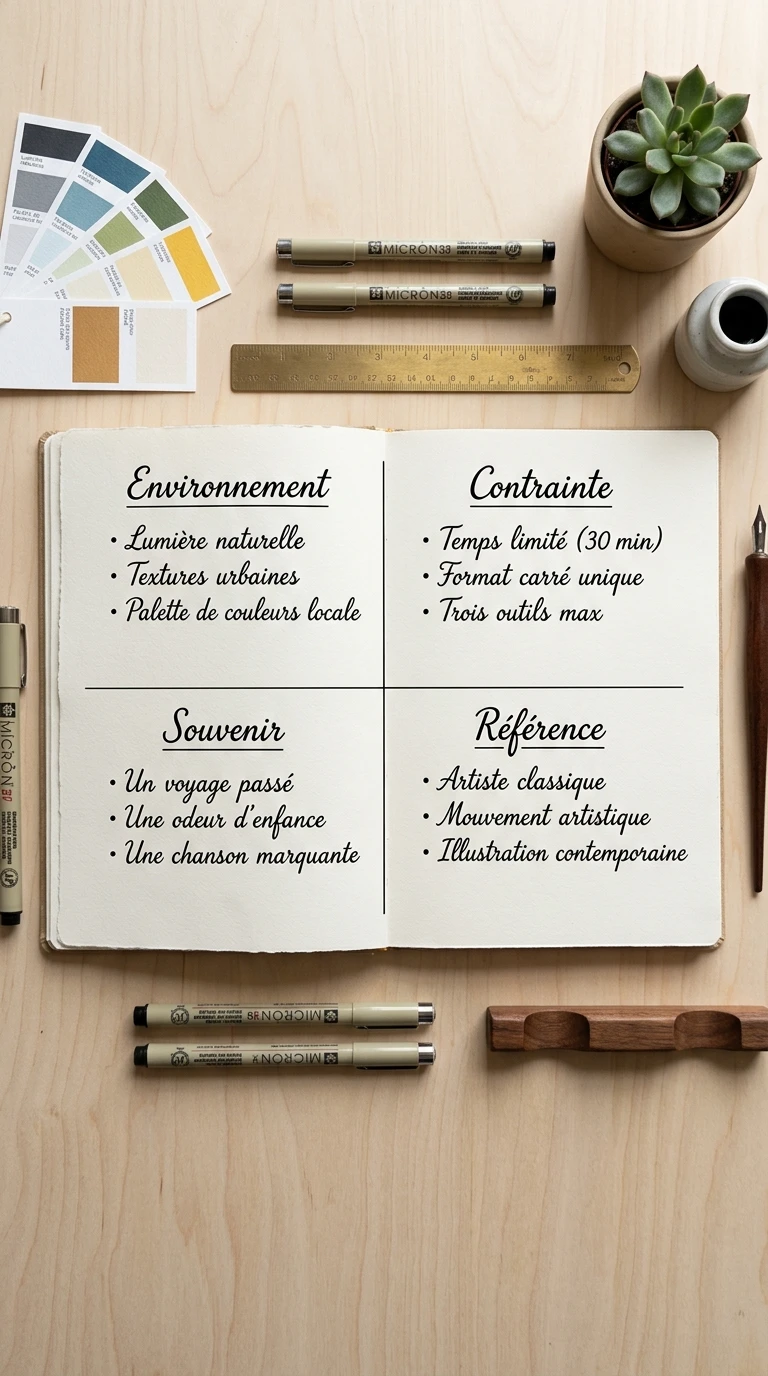 MICRON 38
MICRON 38
1 2 3 4 5 6 7
Environnement
• Lumière naturelle
• Textures urbaines
• Palette de couleurs locale
Contrainte
• Temps limité (30 min)
• Format carré unique
• Trois outils max
Souvenir
• Un voyage passé
• Une odeur d'enfance
• Une chanson marquante
Référence
• Artiste classique
• Mouvement artistique
• Illustration contemporaine
MICRON
MICRON
MICRON